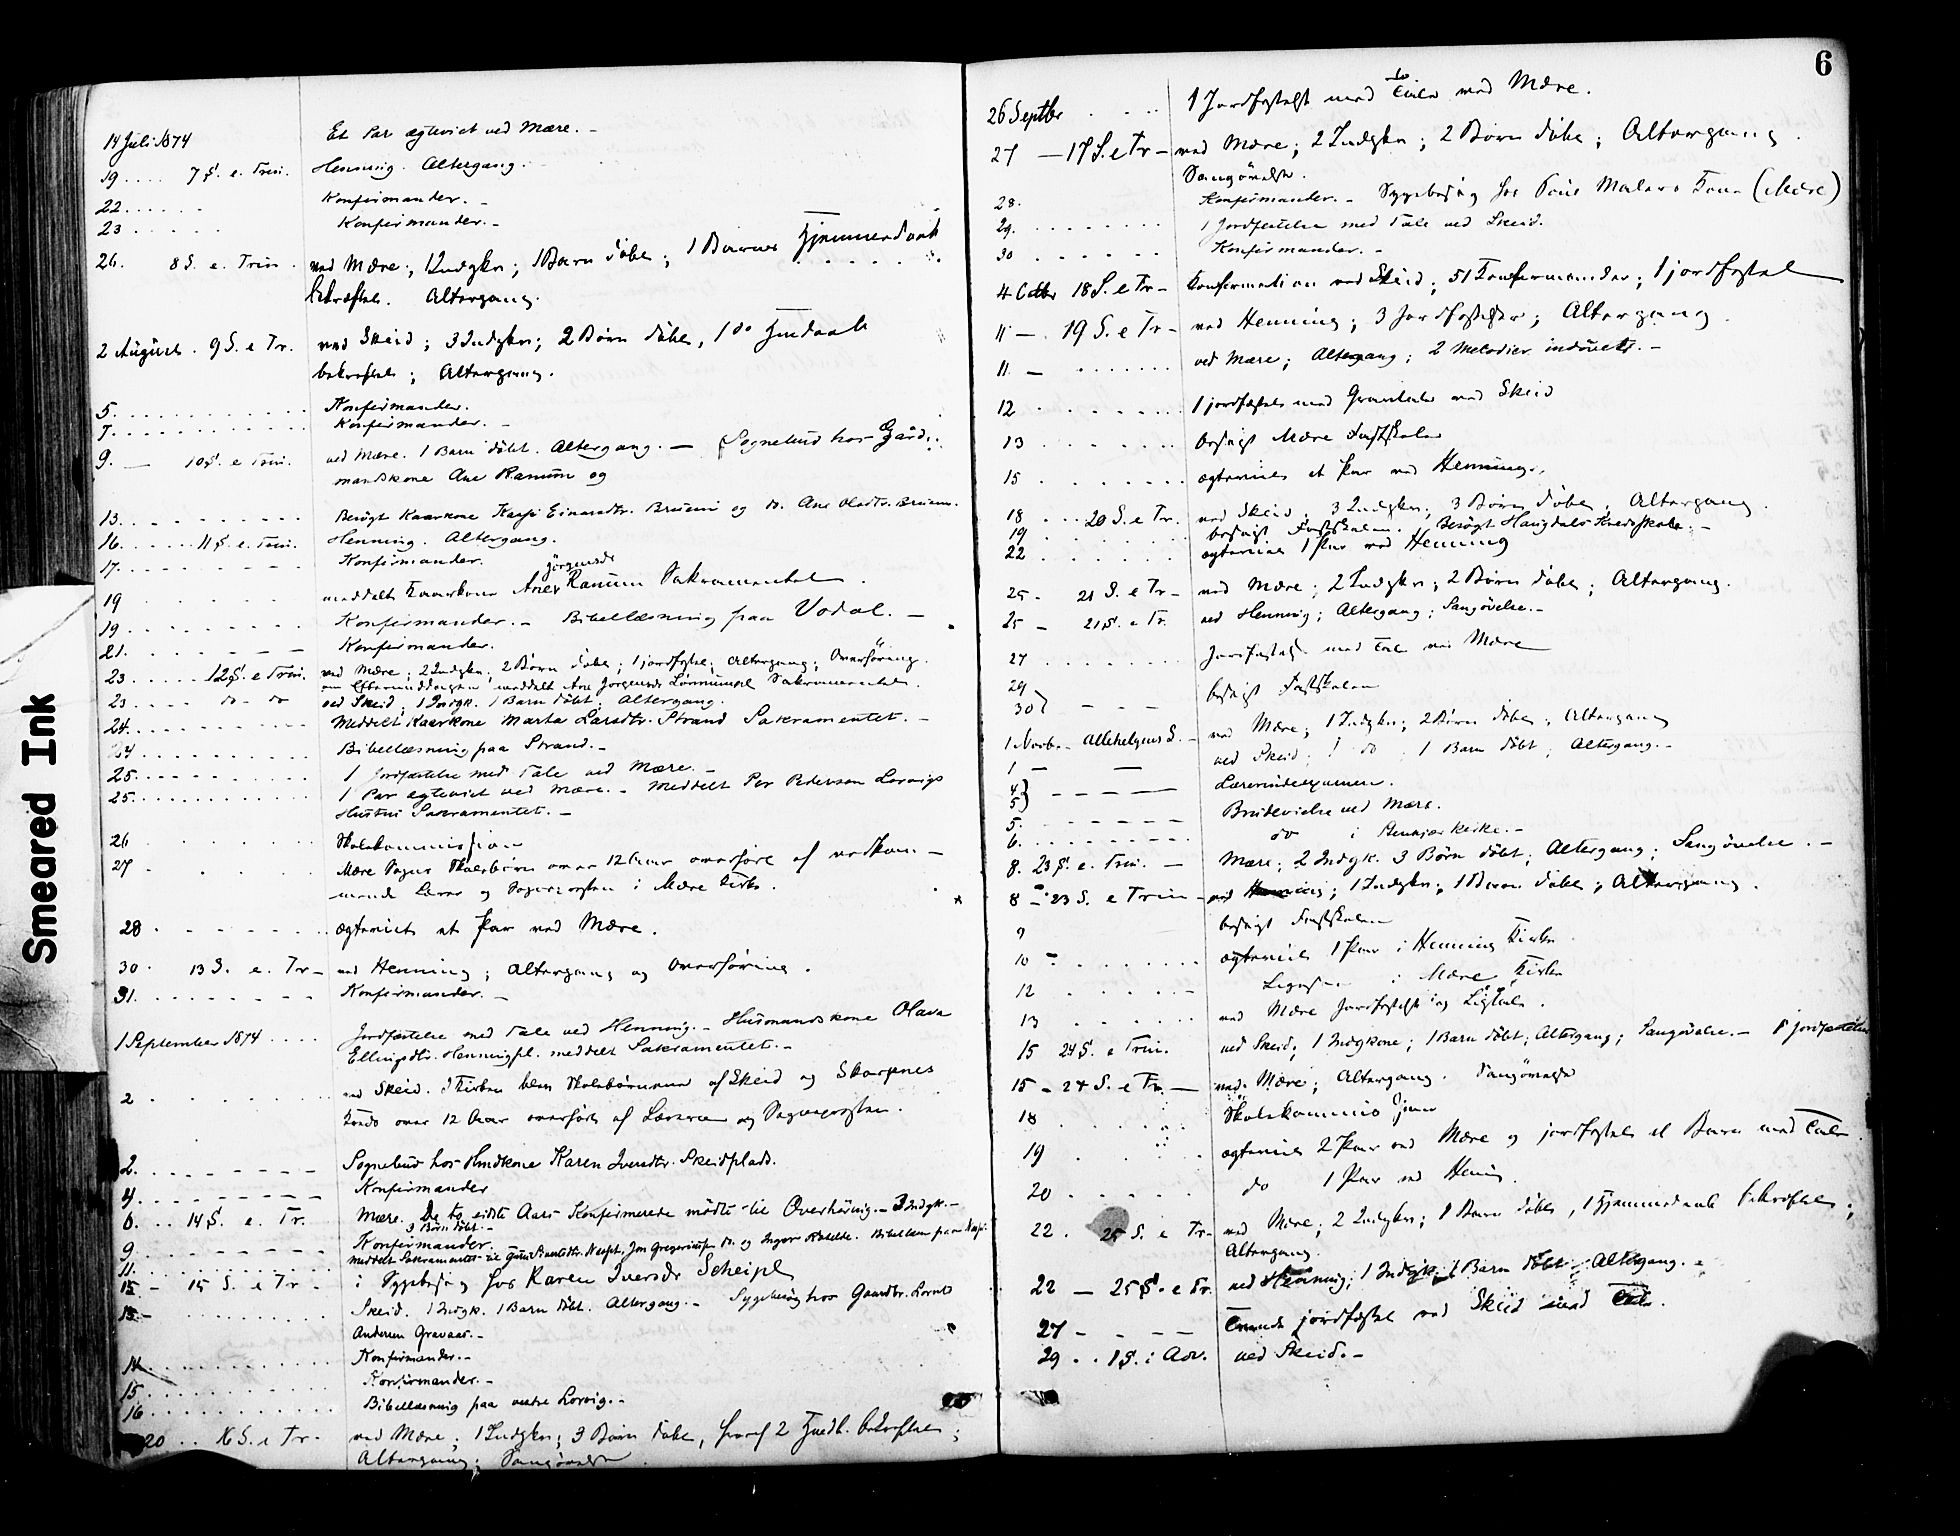 6
Smeared Ink
14 Juli 1874 Et Par ægteviet ved Mære. -
19 .... 7 S. e. Trin. Henning. Altergang.
22 ...... Konfirmander. -
23 ..... Konfirmander. -
26. 8 S. e. Trin. ved Mære; 1 Indgkn; 1 Barn døbt; 1 Barns Hjemmedaab
bekræftet. Altergang.
2 August. 9 S. e Tr. ved Skeid; 3 Indgkn; 2 Børn døbt, 1 do Hmdaab
bekræftet; Altergang.
5. ............ Konfirmander.
7. ............ Konfirmander. -
9. — 10 S. e Trin. ved Mære. 1 Barn døbt. Altergang. — Sognebud hos Gård-
mandskone Ane Ranum og
13. .......... Besøgt Kaarkone Einarsdtr. Bruem og Ane Olsdtr. Bruem.
16. ..... 11 S. e. Trin. Henning. Altergang.
17. .......... Konfirmander.
Jörgensdr
19 ...... meddelt Kaarkone Ane Ranum Sakramentet.
19. ........ Konfirmander. - Bibellæsning paa Vodal. —
21. ....... Konfirmander.
23 ..... 12 S. e Trin. ved Mære; 2 Indgkn; 2 Børn døbt; 1 jordfestet; Altergang; Overhøring.
om Eftermiddagen meddelt Ane Jørgensdr Sakramentet.
23 .... do - do ved Skeid; 1 Indgk. 1 Barn døbt; Altergang.
24. ......... Meddelt Kaarkone Marta Larsdtr. Strand Sakramentet. -
24 .......... Bibellæsning paa Strand. -
25. .......... 1 Jordfæstelse med Tale ved Mære. -
25. .......... 1 Par ægteviet ved Mære. - Meddelt Per Pedersen Lorvigs
Hustru Sakramentet. -
26 ...... Skolekommission
27 - ..... Mære Sogns Skolebørn over 12 Aar overhørt af vedkom-
mende Lærer og Sogneprsten i Mære Kirke.
28 - ....... ægteviet et Par ved Mære.
30 . 13 S. e. Tr - ved Henning; Altergang og Overhøring.
31. ........ Konfirmander. -
1 September 1874 .... Jordfæstelse med Tale ved Henning. - Husmandskone Olava
Ellingsdtr. Henningpl. meddelt Sakramentet. -
2 . ....... ved Skeid. I Kirken blev Skolebørnene af Skeid og Skarpnes
Kreds over 12 Aar overhørt af Læreren og Sogneprsten.
2. ........ Sognebud hos Hmdkone Karen Iversdtr. Skeidplads.
4. ......... Konfirmander
6. ... 14 S. e. Tr. Mære. De to sidste Aars Konfirmerede mødte til Overhøring. - 3 Indgk. -
3 Børn døbt. -
9. .......... Konfirmander.
11. .........
13 - 15 S. e Tr - i Sygebesøg hos Karen Iversdr Skeipl
13 - ......... Skeid. 1 Indgk. 1 Barn døbt. Altergang. - Sygebesøg hos Gaardbr. Lornts
Andersen Gravaas. -
14 ............ Konfirmander. -
15. ........... Konfirmander. -
16 ........... Bibellæsning paa vestre Lorvig. -
20 .. 16 S. e Tr - ved Mære; 1 Indgkn; 3 Børn døbt, hvoraf 2 Hmdb. bekræftet;
Altergang; Sangøvelse.
26 Septbr ... 1 Jordfestelse med Tale ved Mære.
27 — 17 S. e Tr - ved Mære; 2 Indgkn; 2 Børn døbt; Altergang.
Sangøvelse.
28. Konfirmander. - Sygebesøg hos (Mære)
29. ........ 1 Jordfæstelse med Tale ved Skeid.
30 ...... Konfirmander. -
4 Octbr 18 S. e Tr - Konfirmation ved Skeid; 51 Konfirmander; 1 jordfestet
11 — . 19 S. e Tr - ved Henning; 3 Jordfestelser; Altergang.
11. — ....... ved Mære; Altergang; 2 Melodier indøvet. -
12 . ....... 1 jordfestet med Gravtale ved Skeid
13 . ...... besøgt Mære Fastskole
15 . ...... ægteviet et Par ved Henning.
18 ... 20 S. e Tr. ved Skeid; 3 Indgkn; 3 Børn døbt; Altergang.
19 . ....... besøgt Fastskolen. Besøgt Haugdals Kredsskole. -
22 ........ ægteviet 1 Par ved Henning
25 - 21 S. e Tr - ved Mære; 2 Indgkn; 2 Børn døbt; Altergang.
25 — 21 S. e Tr. ved Henning; Altergang; Sangøvelse. -
27 ........ Jordfestelse med Tale ved Mære
29
30 } - - - besøgt Fastskolen
1 Novb. - Allehelgens S. - ved Mære; 1 Indgkn; 2 Børn døbt; Altergang
1 — — ved Skeid; 1 do; 1 Barn døbt; Altergang. -
4
5 } - - - - Lærerindeexamen.
5. ...... Brudevielse ved Mære.
6. ....... do i Stenkjær Kirke. -
8. 23 S. e. Trin. — Mære; 2 Indgk. 3 Børn døbt; Altergang; Sangøvelse. -
8 - 23 S. e Trin - ved Henning; 1 Indgkn; 1 Barn døbt; Altergang.
9 besøgt Fastskolen
10 - ...... ægteviet 1 Par i Henning Kirke.
12 ...... i Mære Kirke
13 ...... ved Mære Jordfestelse og Ligtale.
15 24 S. e Trin. ved Skeid; 1 Indgkone; 1 Barn døbt; Altergang; Sangøvelse. - 1 jordfæstelse
15 - 24 S. e Tr. — ved Mære; Altergang. Sangøvelse
18 ..... Skolekommission
19 .... ægteviet 2 Par ved Mære og jordfestet et Barn med Tale.
20 ..... do 1 Par ved Hening.
22 . 25 S. e Tr - ved Mære; 2 Indgkn; 1 Barn døbt, 1 Hjemmedaab bekræftet;
Altergang.
22 — 25 S. e Tr. ved Henning; 1 Indgk. 1 Barn døbt. Altergang. -
27 - - - - jordfæstet ved Skeid med Tale.
29 .. 1 S. i Adv. ved Skeid. -